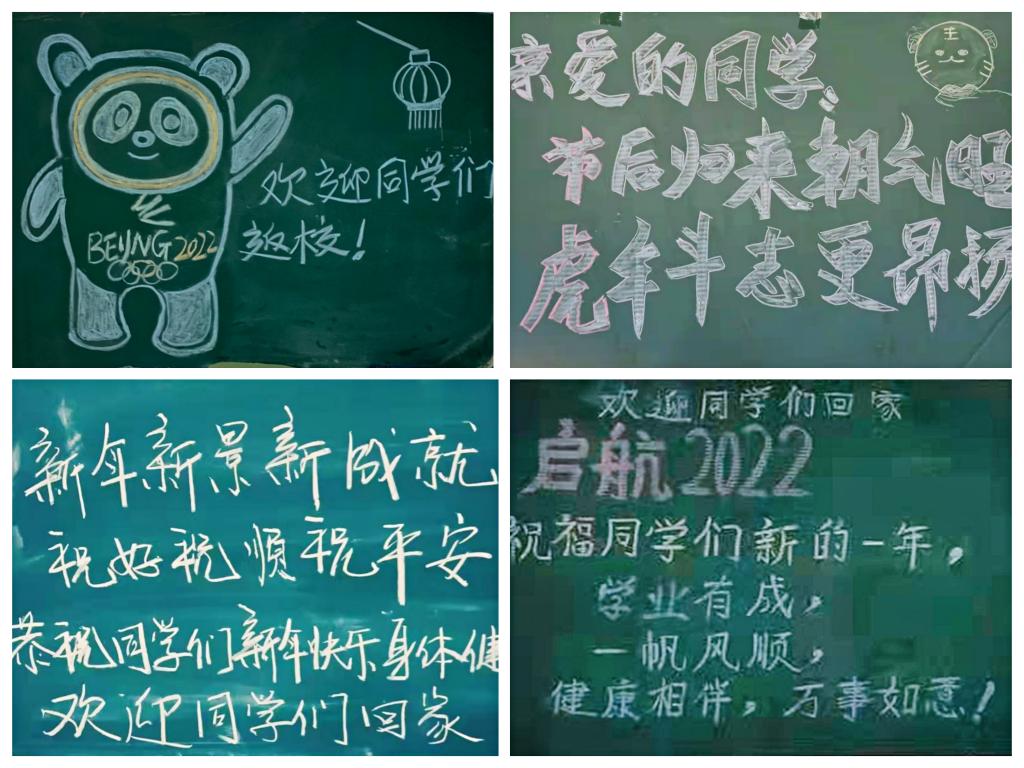 欢迎同学们
返校!
BEIJNG 2022
亲爱的同学、
王
节后归来朝气旺
虎年斗志更昂扬
新年新景新成就
祝好祝顺祝平安
恭祝同学们新年快乐身体健
欢迎同学们回家
欢迎同学们回家
启航2022
祝福同学们新的一年，
学业有成，
一帆风顺，
健康相伴，万事如意!